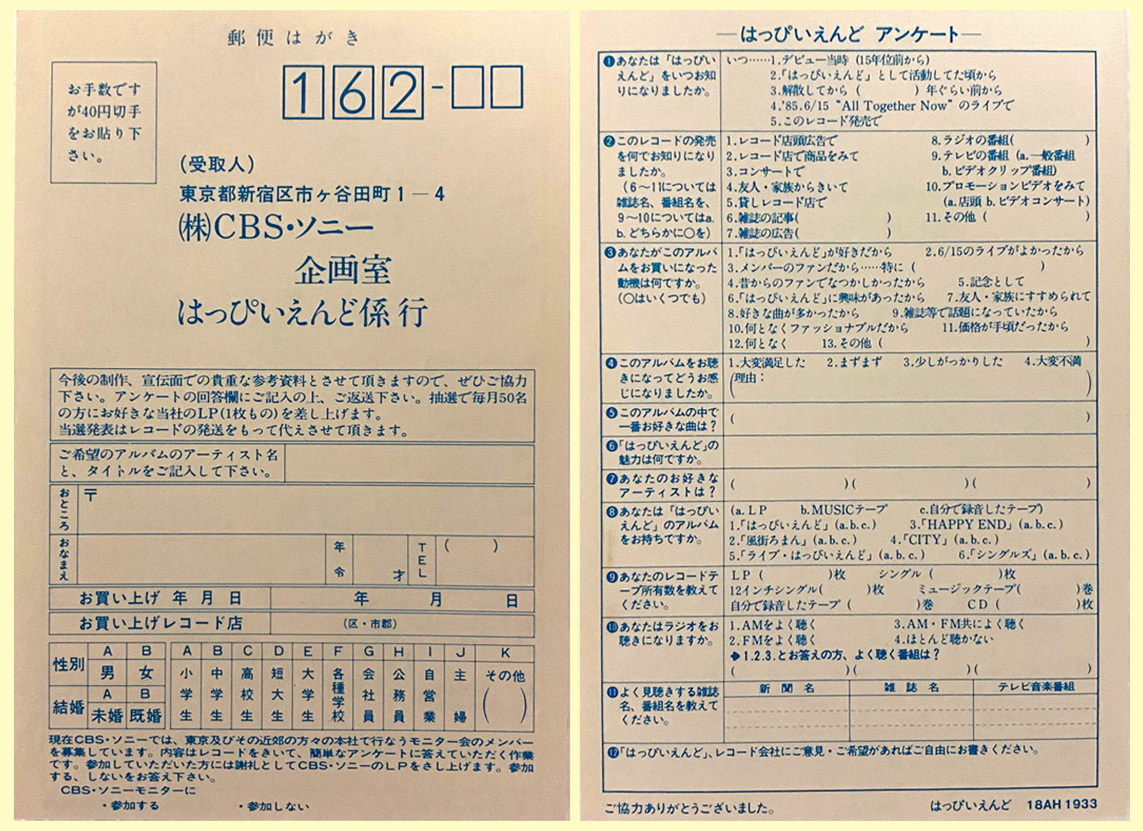 郵便はがき
お手数です
が40円切手
をお貼り下
さい。
162-□□
(受取人)
東京都新宿区市ヶ谷田町1―4
(株)CBS・ソニー
企画室
はっぴいえんど係 行
今後の制作、宣伝面での貴重な参考資料とさせて頂きますので、ぜひご協力
下さい。アンケートの回答欄にご記入の上、ご返送下さい。抽選で毎月50名
の方にお好きな当社のLP(1枚もの)を差し上げます。
当選発表はレコードの発送をもって代えさせて頂きます。
ご希望のアルバムのアーティスト名
と、タイトルをご記入して下さい。
おところ 〒
おなまえ 年令 才 TEL ( )
お買い上げ 年 月 日 年 月 日
お買い上げレコード店 (区・市郡)
性別 A男 B女
結婚 A未婚 B既婚
A小学生 B中学生 C高校生 D短大生 E大学生 F各種学校 G会社員 H公務員 I自営業 J主婦 Kその他( )
現在CBS・ソニーでは、東京及びその近郊の方々の本社で行なうモニター会のメンバー
を募集しています。内容はレコードをきいて、簡単なアンケートに答えていただく作業
です。参加していただいた方には謝礼としてCBS・ソニーのLPをさし上げます。参加
する、しないをお答え下さい。
CBS・ソニーモニターに
・参加する ・参加しない
―はっぴいえんど アンケート―
❶あなたは「はっぴい
えんど」をいつお知
りになりましたか。
いつ……1.デビュー当時 (15年位前から)
2.「はっぴいえんど」として活動してた頃から
3.解散してから ( ) 年ぐらい前から
4.'85.6/15 “All Together Now”のライブで
5.このレコード発売で
❷このレコードの発売
を何でお知りになり
ましたか。
(6〜11については
雑誌名、番組名を、
9〜10についてはa.
b.どちらかに○を)
1.レコード店頭広告で
2.レコード店で商品をみて
3.コンサートで
4.友人・家族からきいて
5.貸しレコード店で
6.雑誌の記事( )
7.雑誌の広告( )
8.ラジオの番組( )
9.テレビの番組 (a.一般番組
b.ビデオクリップ番組)
10.プロモーションビデオをみて
(a.店頭 b.ビデオコンサート)
11.その他 ( )
❸あなたがこのアルバ
ムをお買いになった
動機は何ですか。
(○はいくつでも)
1.「はっぴいえんど」が好きだから 2.6/15のライブがよかったから
3.メンバーのファンだから……特に ( )
4.昔からのファンでなつかしかったから 5.記念として
6.「はっぴいえんど」に興味があったから 7.友人・家族にすすめられて
8.好きな曲が多かったから 9.雑誌等で話題になっていたから
10.何となくファッショナブルだから 11.価格が手頃だったから
12.何となく 13.その他 ( )
❹このアルバムをお聴
きになってどうお感
じになりましたか。
1.大変満足した 2.まずまず 3.少しがっかりした 4.大変不満
(理由: )
❺このアルバムの中で
一番お好きな曲は?
( )
❻「はっぴいえんど」の
魅力は何ですか。
❼あなたのお好きな
アーティストは?
( )( )( )
❽あなたは「はっぴい
えんど」のアルバム
をお持ちですか。
(a.LP b.MUSICテープ c.自分で録音したテープ)
1.「はっぴいえんど」(a.b.c.) 3.「HAPPY END」(a.b.c.)
2.「風街ろまん」(a.b.c.) 4.「CITY」(a.b.c.)
5.「ライブ・はっぴいえんど」(a.b.c.) 6.「シングルズ」(a.b.c.)
❾あなたのレコードテ
ープ所有数を教えて
ください。
LP ( )枚 シングル ( )枚
12インチシングル( )枚 ミュージックテープ( )巻
自分で録音したテープ ( )巻 CD ( )枚
❿あなたはラジオをお
聴きになりますか。
1.AMをよく聴く 3.AM・FM共によく聴く
2.FMをよく聴く 4.ほとんど聴かない
➔1.2.3.とお答えの方、よく聴く番組は?
( )( )( )
⓫よく見聴きする雑誌
名、番組名を教えて
ください。
新聞名 雑誌名 テレビ音楽番組
⓬「はっぴいえんど」、レコード会社にご意見・ご希望があればご自由にお書きください。
ご協力ありがとうございました。
はっぴいえんど 18AH 1933